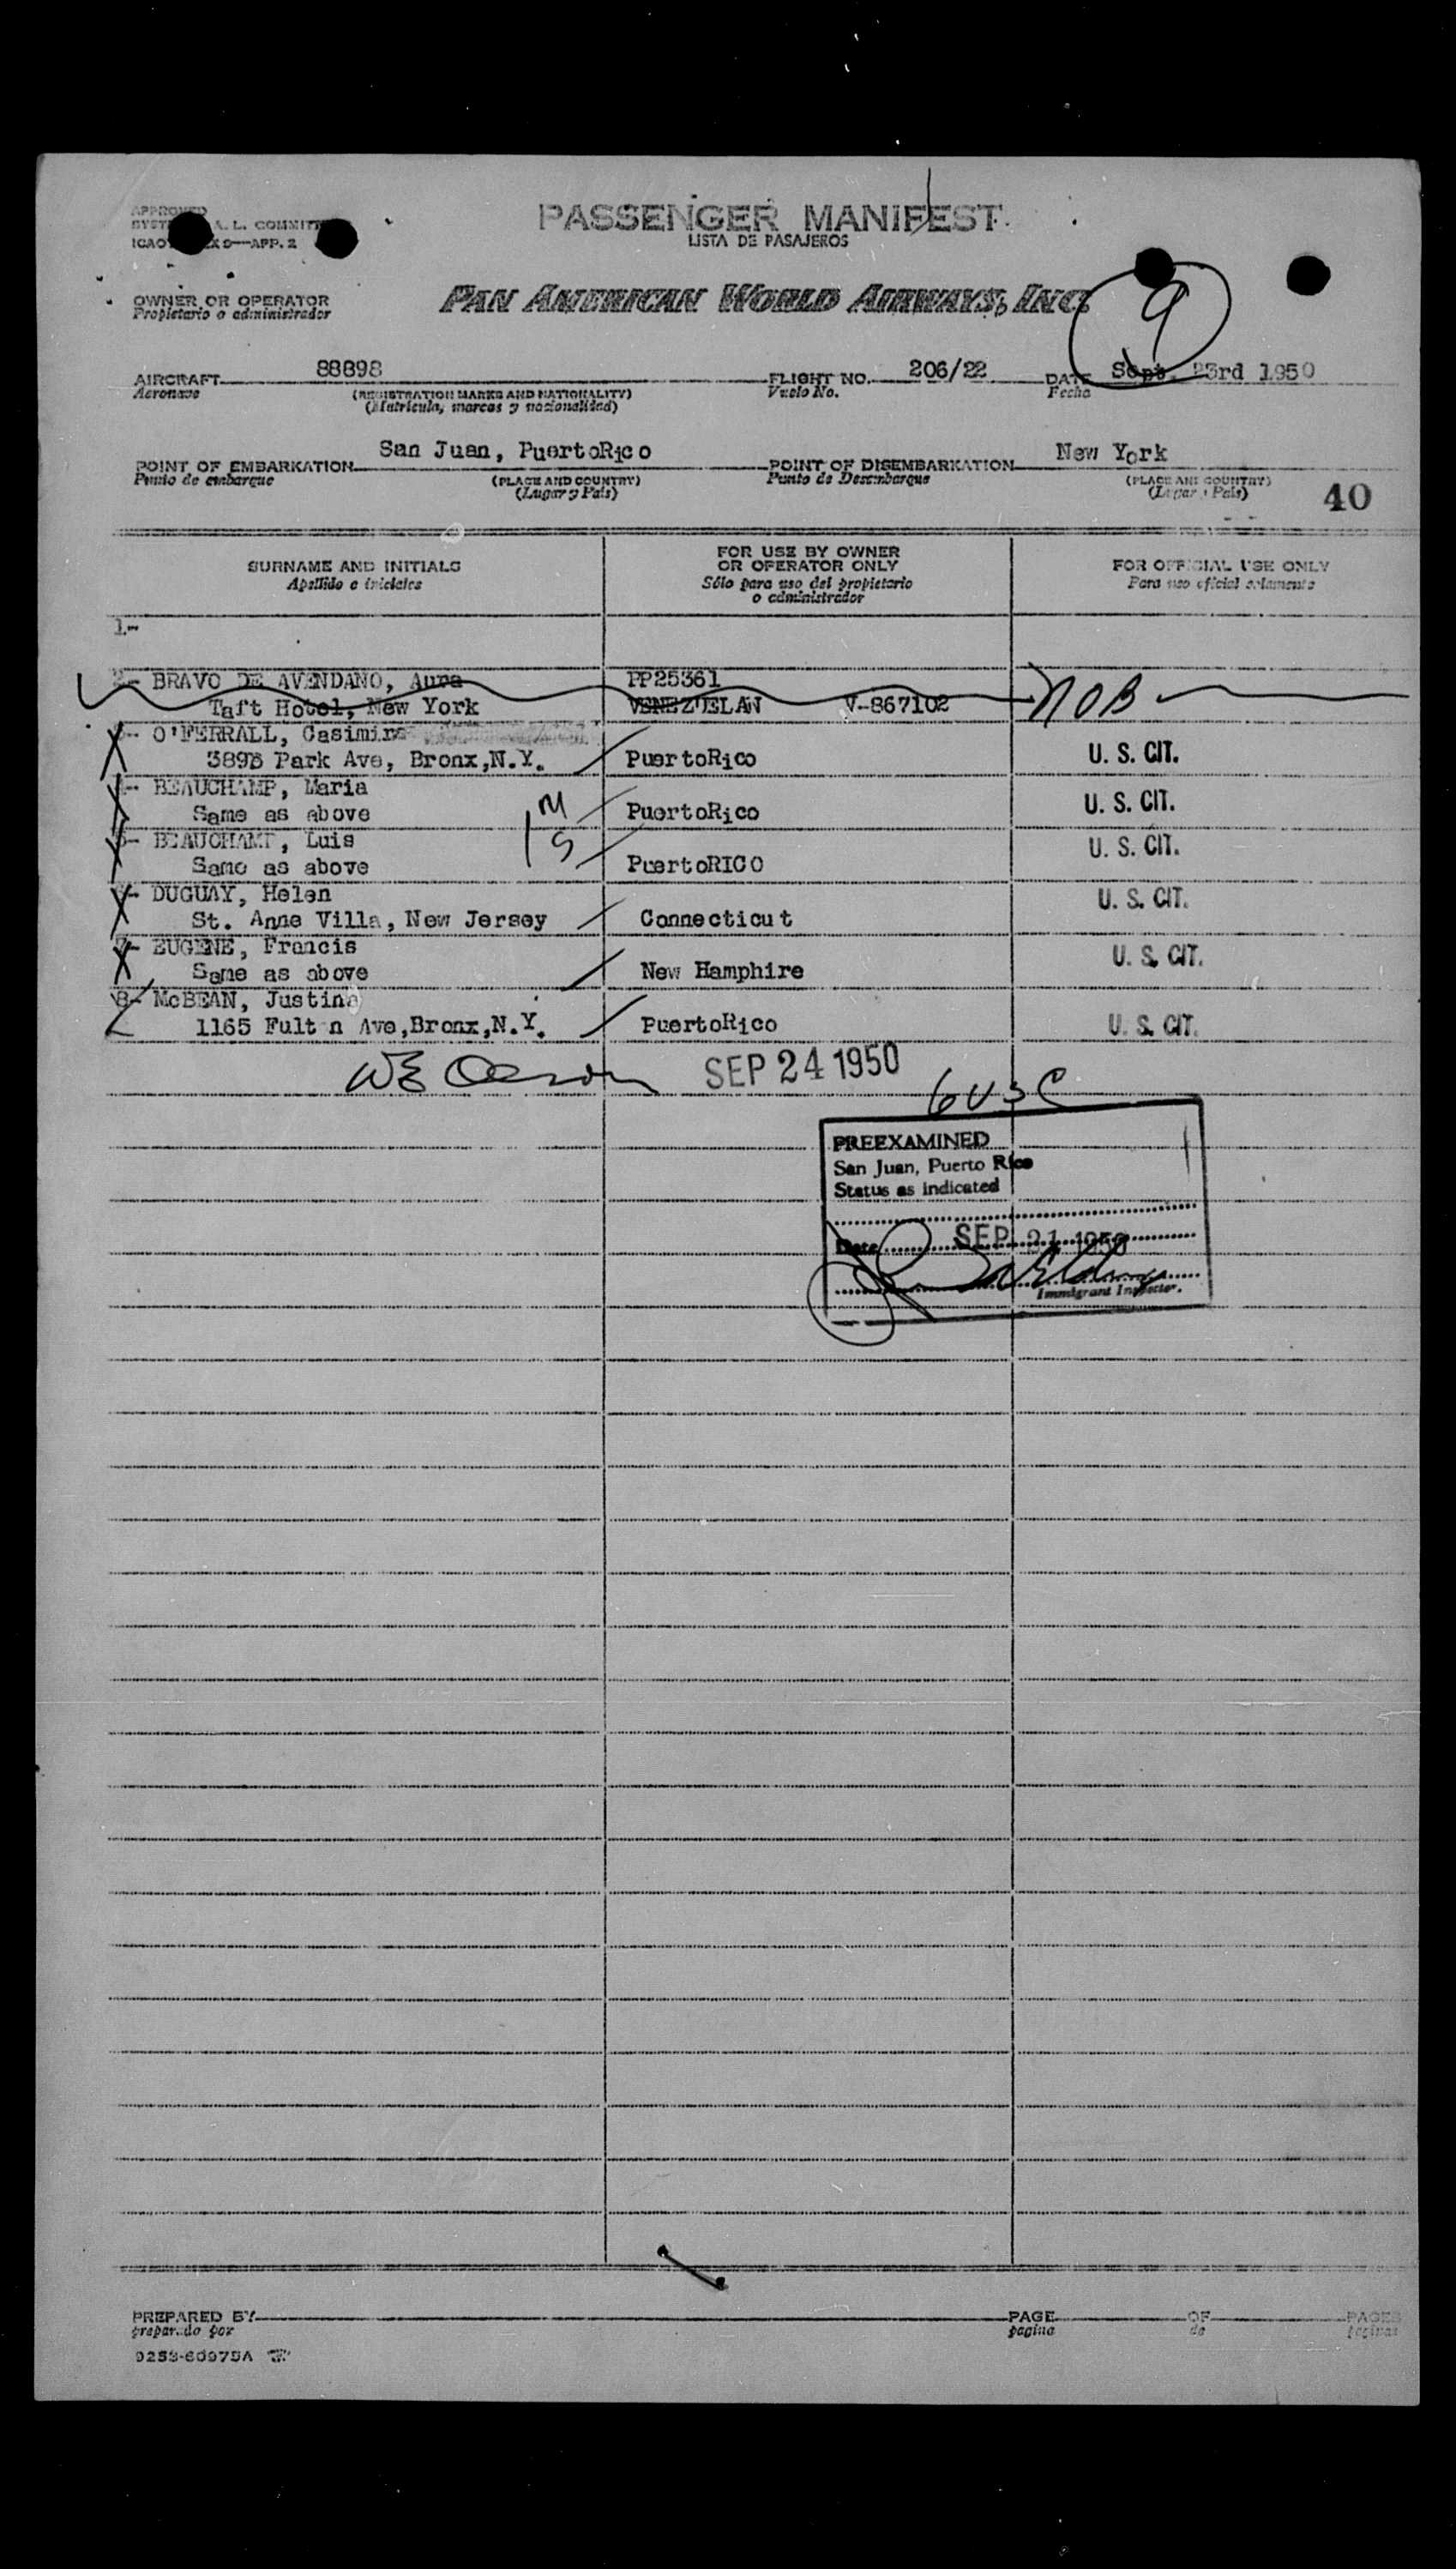 APPROVED
A. L. COMMITT
ICAO APP. 2
PASSENGER MANIFEST
LISTA DE PASAJEROS
OWNER OR OPERATOR
Propietario o administrador
PAN AMERICAN WORLD AIRWAYS, INC.
9
AIRCRAFT 88898 FLIGHT NO. 206/22 DATE Sept. 23rd 1950
Aeronave (REGISTRATION MARKS AND NATIONALITY) Vuelo No. Fecha
(Matricula, marcas y nacionalidad)
POINT OF EMBARKATION San Juan, PuertoRico POINT OF DISEMBARKATION New York
Punto de embarque (PLACE AND COUNTRY) Punto de Desembarque (PLACE AND COUNTRY)
(Lugar y País) (Lugar y País)
40
SURNAME AND INITIALS FOR USE BY OWNER OR OPERATOR ONLY FOR OFFICIAL USE ONLY
Apellido e iniciales Sólo para uso del propietario o administrador Para uso oficial solamente
1.-
2- BRAVO DE AVENDANO, Aura PP25361
Taft Hotel, New York VENEZUELAN V-867102 NOB
3- O'FERRALL, Casimiro
Park Ave, Bronx,N.Y. PuertoRico U. S. CIT.
4- BEAUCHAMP, Maria
Same as above 1 M PuertoRico U. S. CIT.
5- BEAUCHAMP, Luis
Same as above S PuertoRICO U. S. CIT.
6- DUGUAY, Helen
St. Anne Villa, New Jersey Connecticut U. S. CIT.
7- EUGENE, Francis
Same as above New Hamphire U. S. CIT.
8- McBEAN, Justina
1165 Fult n Ave,Bronx,N.Y. PuertoRico U. S. CIT.
SEP 24 1950
6 USC
PREEXAMINED
San Juan, Puerto Rico
Status as indicated
Date SEP 1950
Immigrant Inspector.
PREPARED BY PAGE OF PAGES
preparado por pagina de paginas